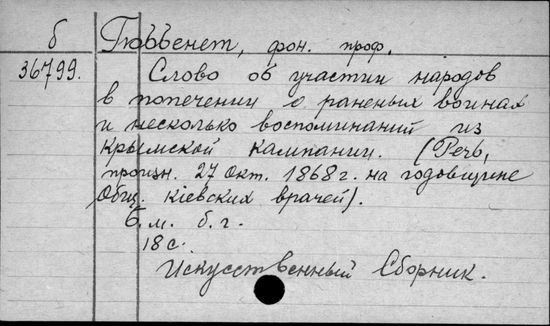 б Гюббенет, фон. проф.
36799. Слово об участии народов
в попечении о раненых воинах
и несколько воспоминаний из
Крымской кампании. (Речь,
произн. 27 Окт. 1868 г. на годовщине
Общ. Кіевских врачей).
б. м. б. г.
18 с.
Искусственный Сборник.